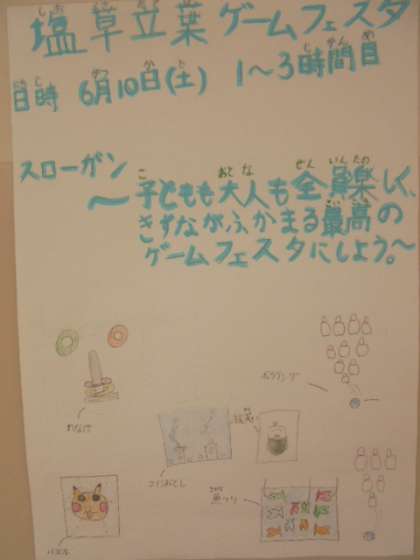 塩草立葉ゲームフェスタ
日時 6月10日(土) 1〜3時間目
スローガン
〜子どもも大人も全員楽しく、
きずながふかまる最高の
ゲームフェスタにしよう。〜
ボウリング
わなげ
コインおとし
魚つり
パズル